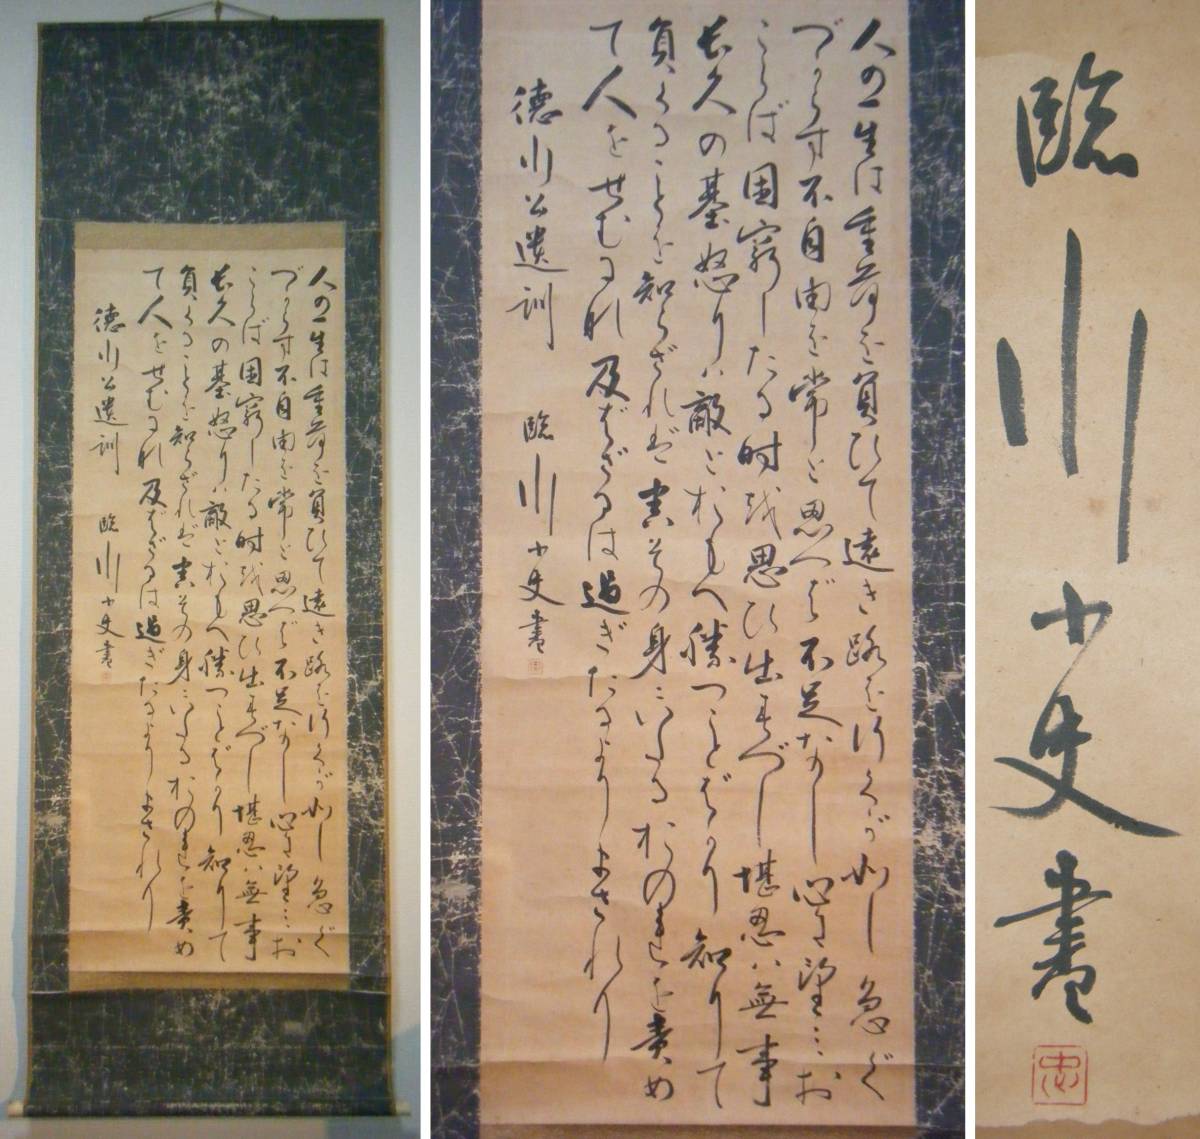 人の一生は重荷を負ひて遠き路を行くが如し急ぐ
べからず不自由を常と思へば不足なし心に望ミお
こらば困窮したる時を思ひ出すべし堪忍ハ無事
長久の基怒りハ敵とおもへ勝つことばかり知りて
負くることを知らざれば害その身にいたるおのれを責め
て人をせむるな及ばざるは過ぎたるよりまされり
徳川公遺訓 臨川小史書
人の一生は重荷を負ひて遠き路を行くが如し急ぐ
べからず不自由を常と思へば不足なし心に望ミお
こらば困窮したる時を思ひ出すべし堪忍ハ無事
長久の基怒りハ敵とおもへ勝つことばかり知りて
負くることを知らざれば害その身にいたるおのれを責め
て人をせむるな及ばざるは過ぎたるよりまされり
徳川公遺訓 臨川小史書
臨川小史書
忠